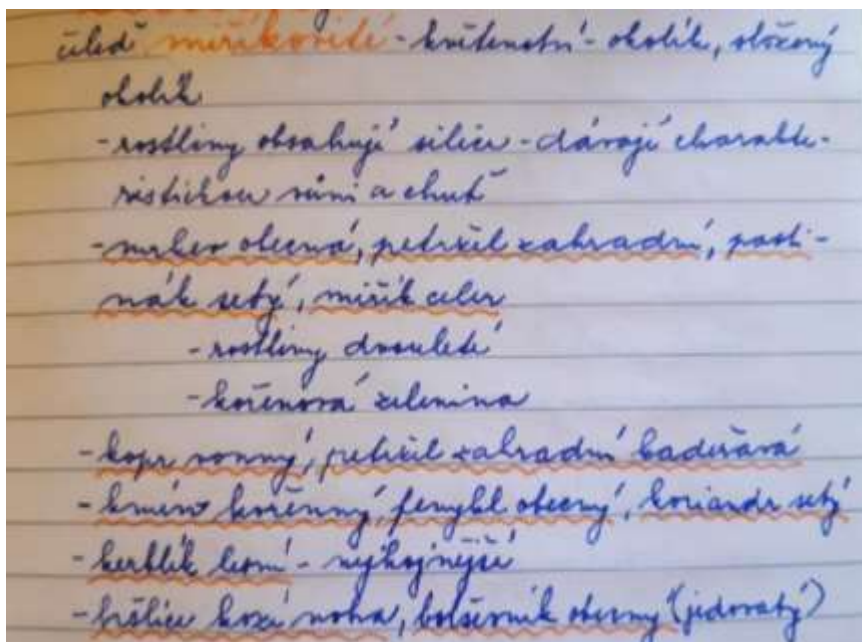 čeleď miříkovité - květenství - okolík, složený
okolík
- rostliny obsahují silice - dávají charakte-
ristickou vůni a chuť
- mrkev obecná, petržel zahradní, pasti-
nák setý, miřík celer
- rostliny dvouleté
- kořenová zelenina
- kopr vonný, petržel zahradní kadeřavá
- kmín kořenný, fenykl obecný, koriandr setý
- kerblík lesní - nejhojnější
- bršlice kozí noha, bolševník obecný (jedovatý)